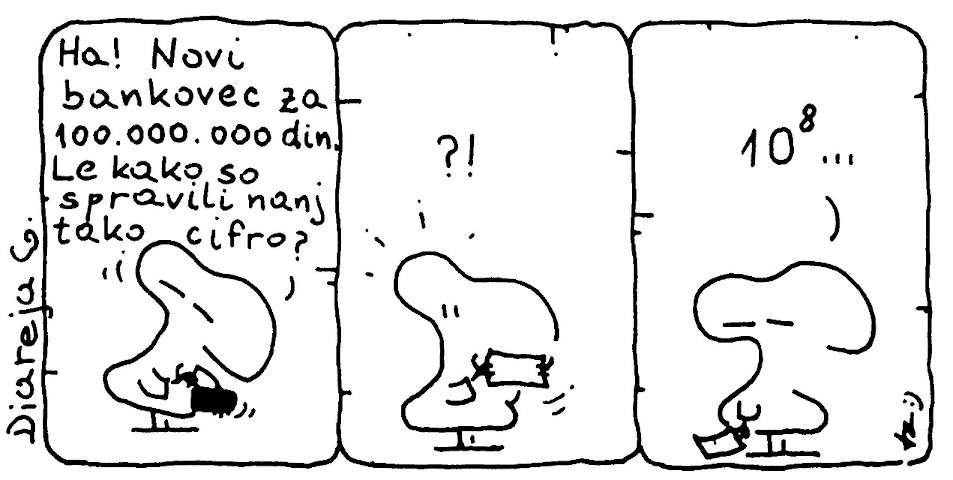 Diareja
Ha! Novi
bankovec za
100.000.000 din.
Le kako so
spravili nanj
tako cifro?
?!
10⁸...